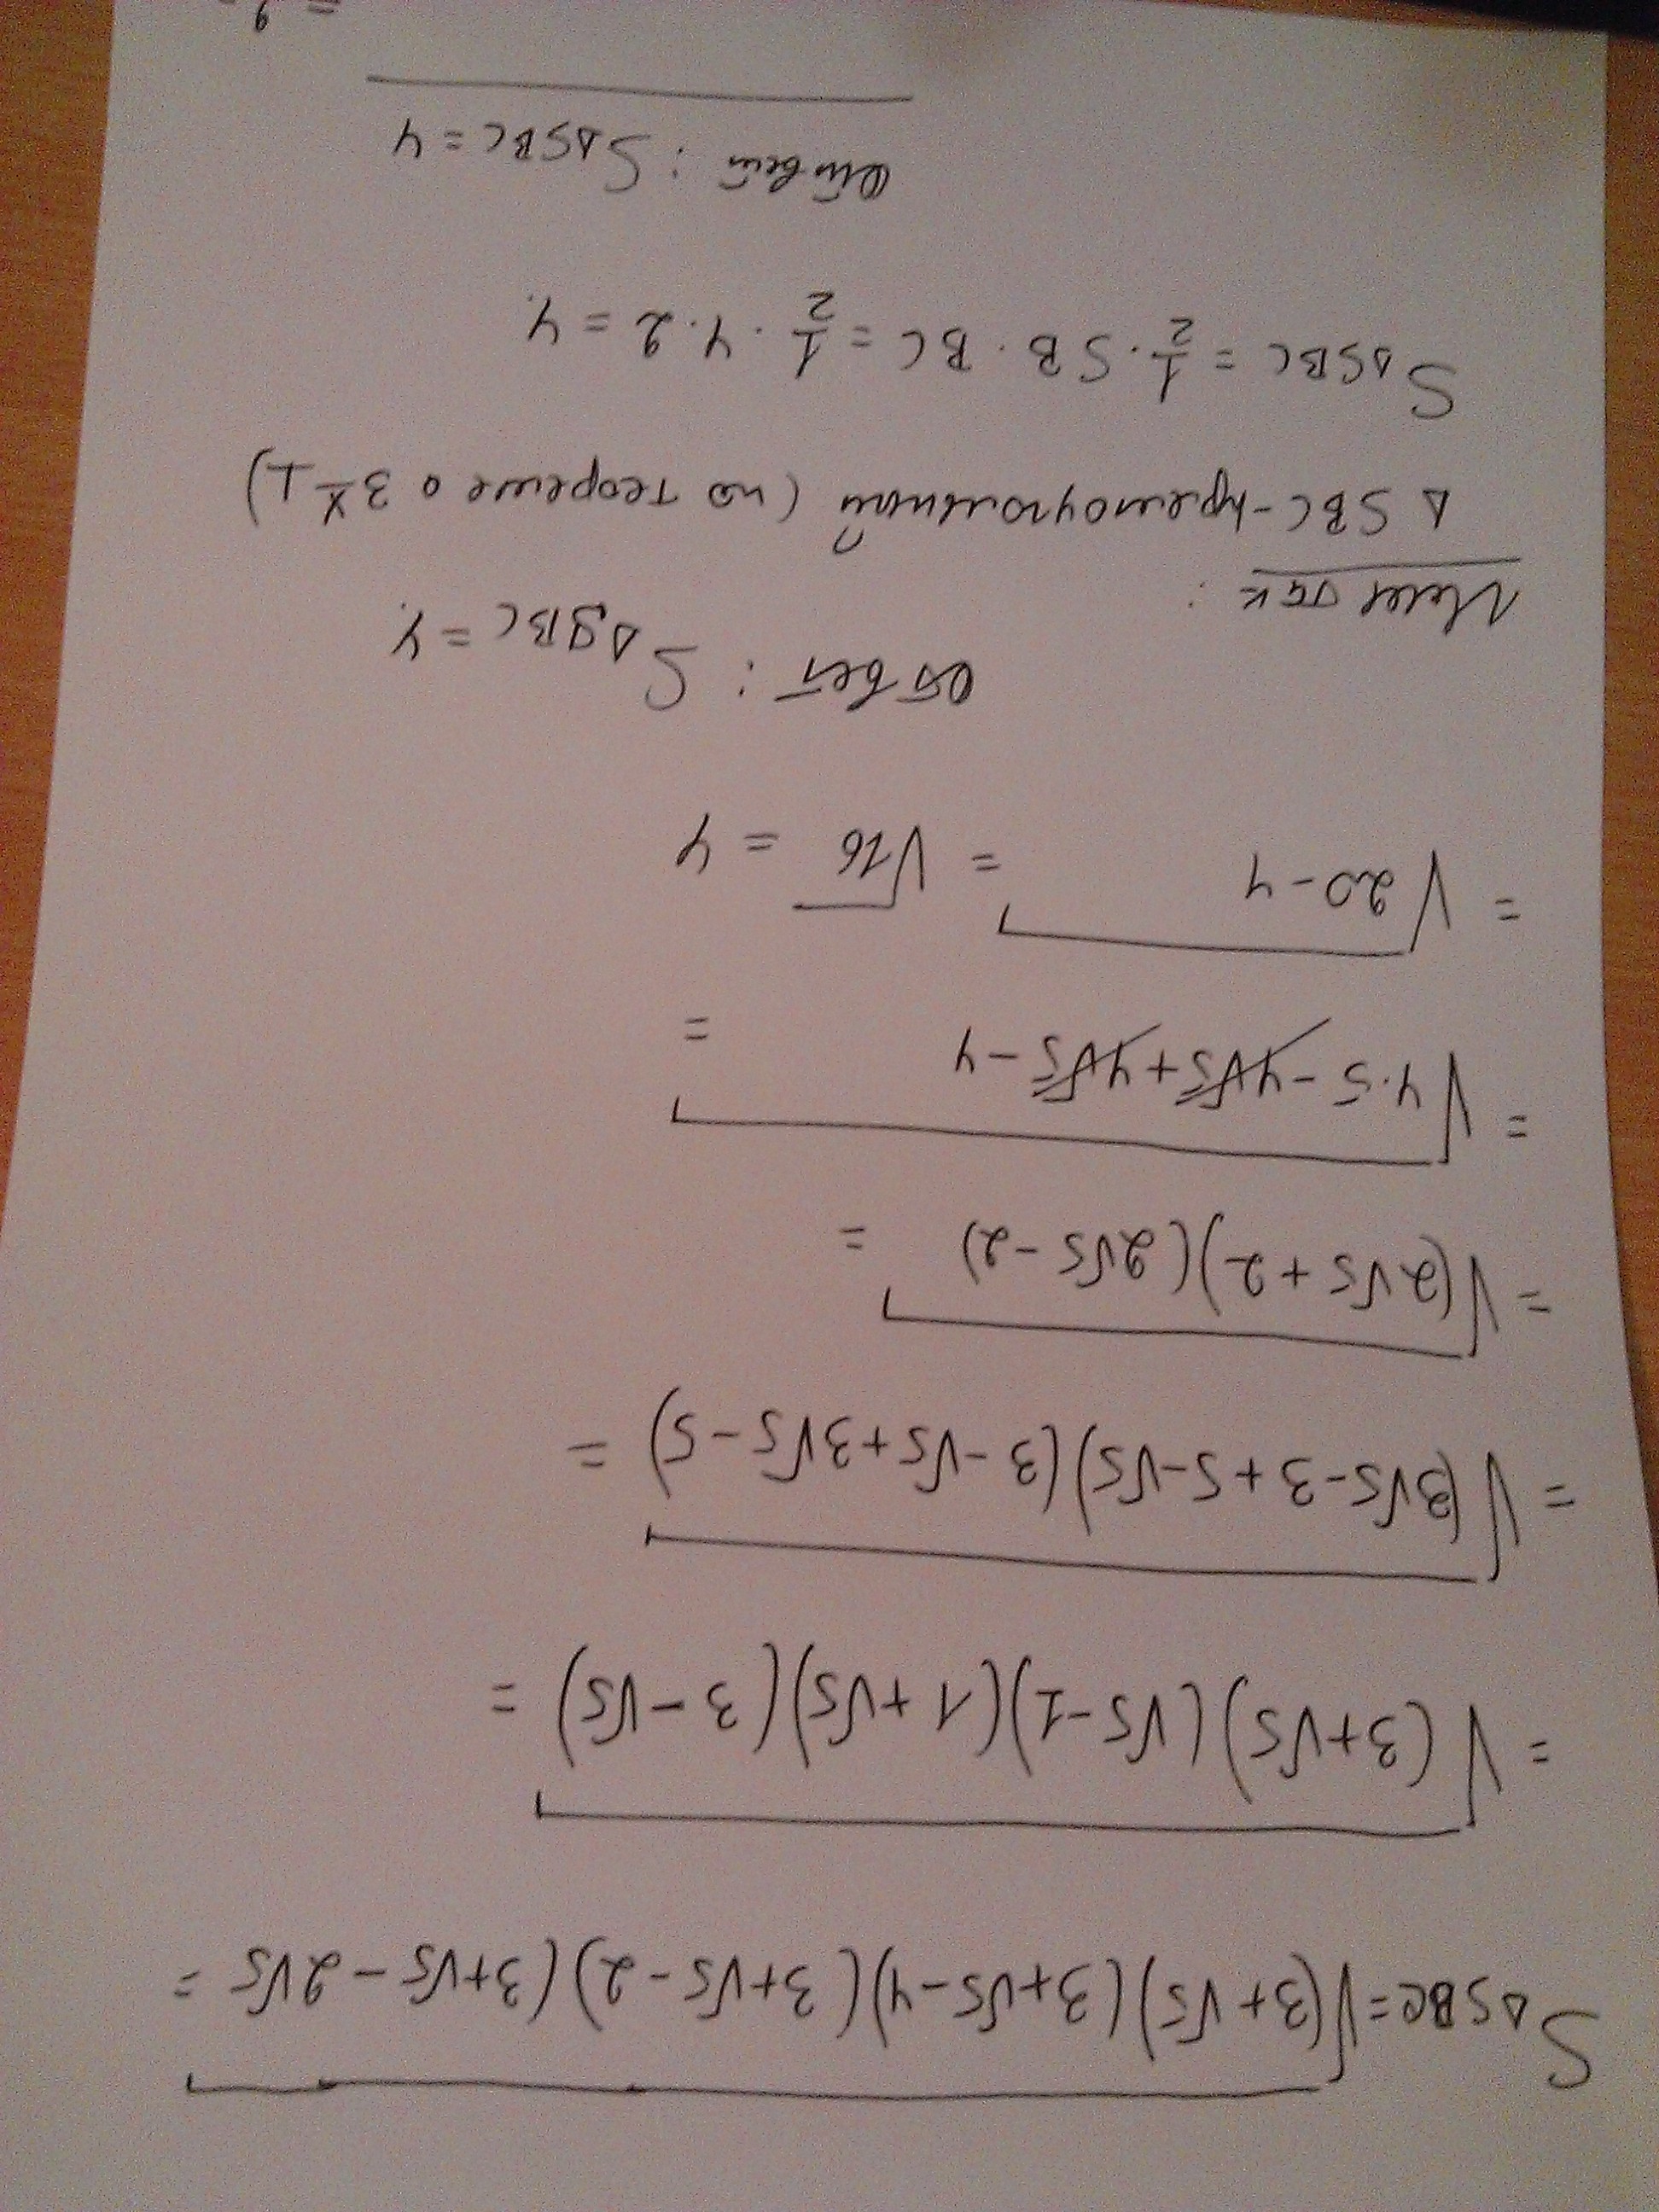 S∆SBC=√(3+√5)(3+√5-4)(3+√5-2)(3+√5-2√5 =
=√(3+√5)(√5-1)(1+√5)(3-√5) =
=√(3√5-3+5-√5)(3-√5+3√5-5) =
=√(2√5+2)(2√5-2) =
=√4·5-4√5+4√5-4 =
=√20-4 = √16 = 4
Ответ: S∆SBC = 4.
Или так:
∆SBC-прямоугольный (по теореме о 3х ⊥)
S∆SBC = 1/2·SB·BC = 1/2·4·2 = 4.
Ответ: S∆SBC = 4